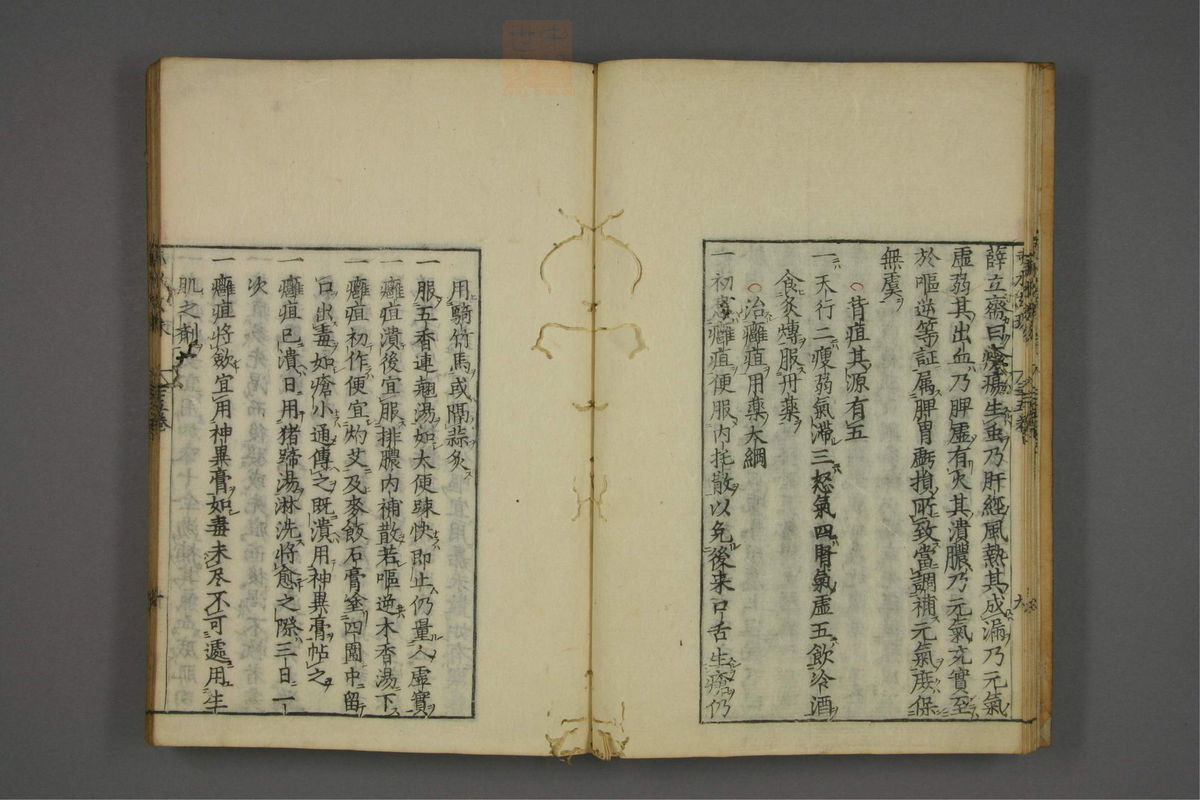 薛立齋曰瘡瘍生虫乃肝經風熱其成漏乃元氣
虛弱其出血乃脾虛有火其潰膿乃元氣充實至
於嘔逆等証属脾胃虧損所致當調補元氣庶保
無虞
○背疽其源有五
一天行二瘦弱氣滞三怒氣四腎氣虛五飲冷酒
食炙煿服丹藥
○治癰疽用藥大綱
一初意癰疽便服内托散以免後来口舌生瘡仍
用騎竹馬或隔蒜灸
一服五香連翹湯如大便疎快即止仍量人虛實
一癰疽潰後宜服排膿内補散若嘔逆木香湯下
一癰疽初作便宜灼艾及麥飯石膏塗四圍中留
口出毒如瘡小通傅之既潰用神異膏帖之
一癰疽已潰日用猪蹄湯淋洗將愈之際三日一
次
一癰疽将斂宜用神異膏如毒未尽不可遽用生
肌之剤